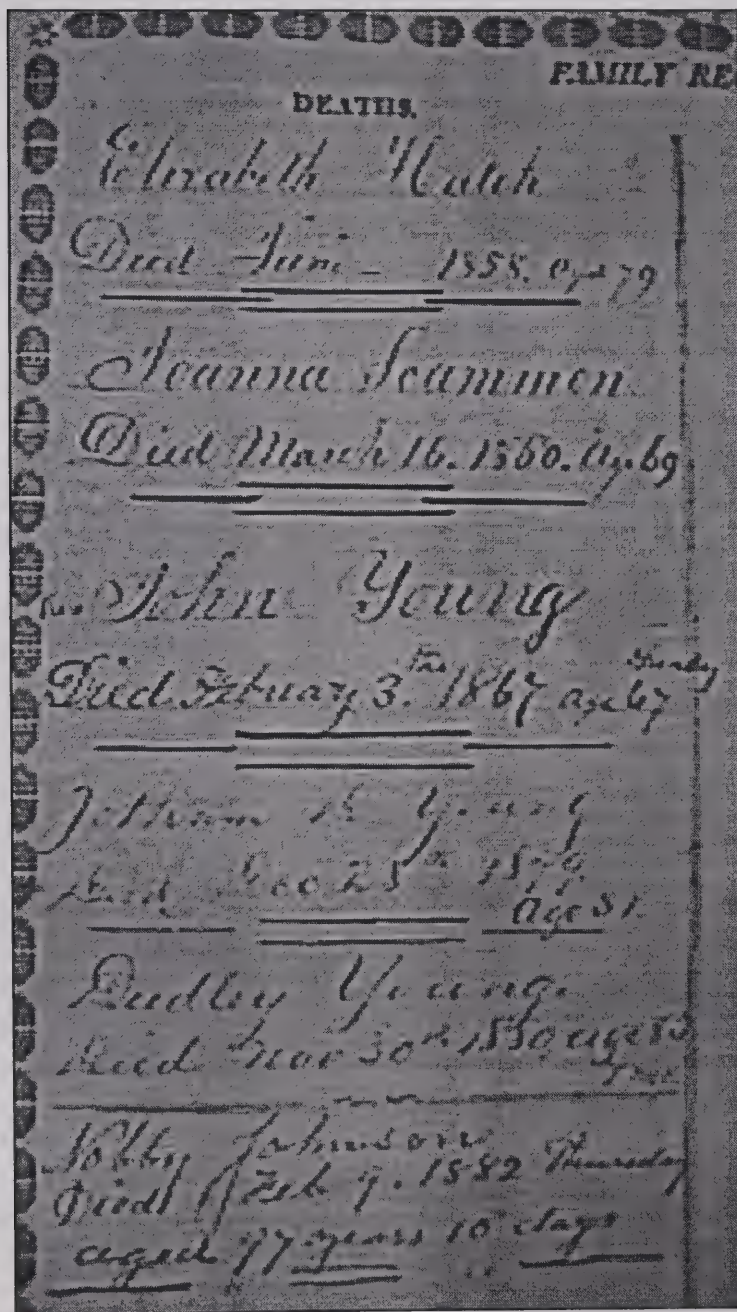 FAMILY RE
DEATHS.
Elizabeth Hatch
Died June 1858. Age 79
Joanna Scammon
Died March 16. 1860. Age 69
John Young
Sunday
Died Febuary 3. 1867 age 67
Jotham Young
Died 25th age 81
Dudley Young
Died Nov 30th 1880 age
Johnson
Died Feb 9. 1882 Thursday
aged 77 years 10 days